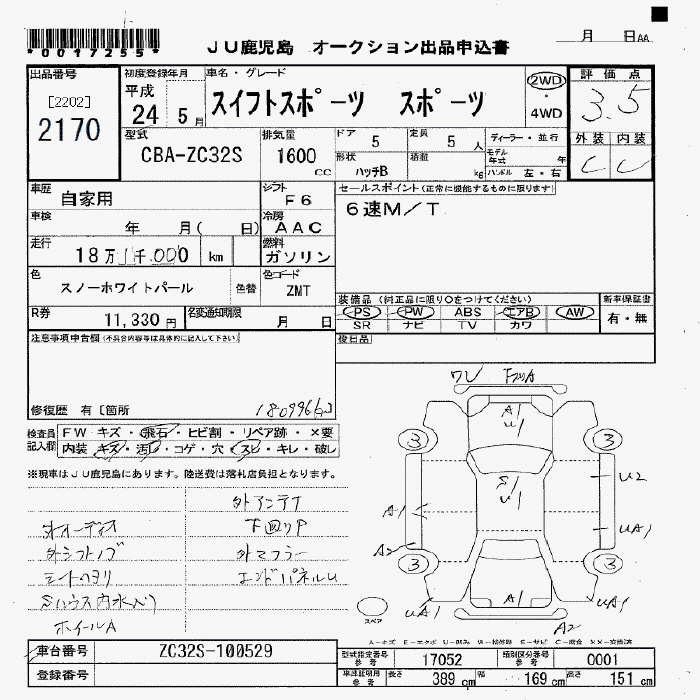 *0017255*
JU鹿児島 オークション出品申込書
月 日AA
出品番号
[2202]
2170
初度登録年月
平成
24 5月
車名・グレード
スイフトスポーツ スポーツ
2WD
・
4WD
評価点
3.5
外装 内装
C C
型式
CBA-ZC32S
排気量
1600
cc
ドア 5
定員 5人
形状 ハッチB
積載 kg
ディーラー・並行
モデル年式 年
ハンドル 左・右
車歴
自家用
シフト
F6
車検
年 月( 日)
冷房
AAC
走行
18万 1千.000 km
燃料
ガソリン
色
スノーホワイトパール
色替
色コード
ZMT
R券
11,330 円
名変通知期限
月 日
セールスポイント(正常に機能するものに限ります)
6速M/T
装備品(純正品に限り○をつけてください)
PS PW ABS エアB AW
SR ナビ TV カワ
新車保証書
有・無
後日品
注意事項申告欄(不具合内容等は具体的に記入して下さい)
修復歴 有〔箇所
180996
検査員
記入欄
FW キズ・飛石・ヒビ割・リペア跡・×要
内装・キズ・汚レ・コゲ・穴・スレ・キレ・破レ
※現車はJU鹿児島にあります。陸送費は落札店負担となります。
オーディオ
外シフトノブ
シートヘタリ
Sハウス内水入り
ホイールA
外アンテナ
下回りP
外マフラー
エンドパネルU
ワレ FガラA
A1
U1
3
3
U2
S
U1
A1
UA1
A2
3
3
A1
UA1
UA1
A2
スペア
車台番号
ZC32S-100529
登録番号
型式指定番号
参考
17052
類別区分番号
参考
0001
車検証記載
参考
長さ 389 cm
幅 169 cm
高さ 151 cm